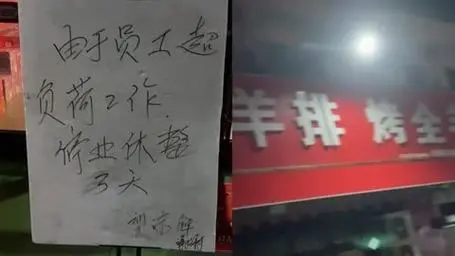 由于员工超
负荷工作
停业休整
3天
望谅解
羊排 烤全